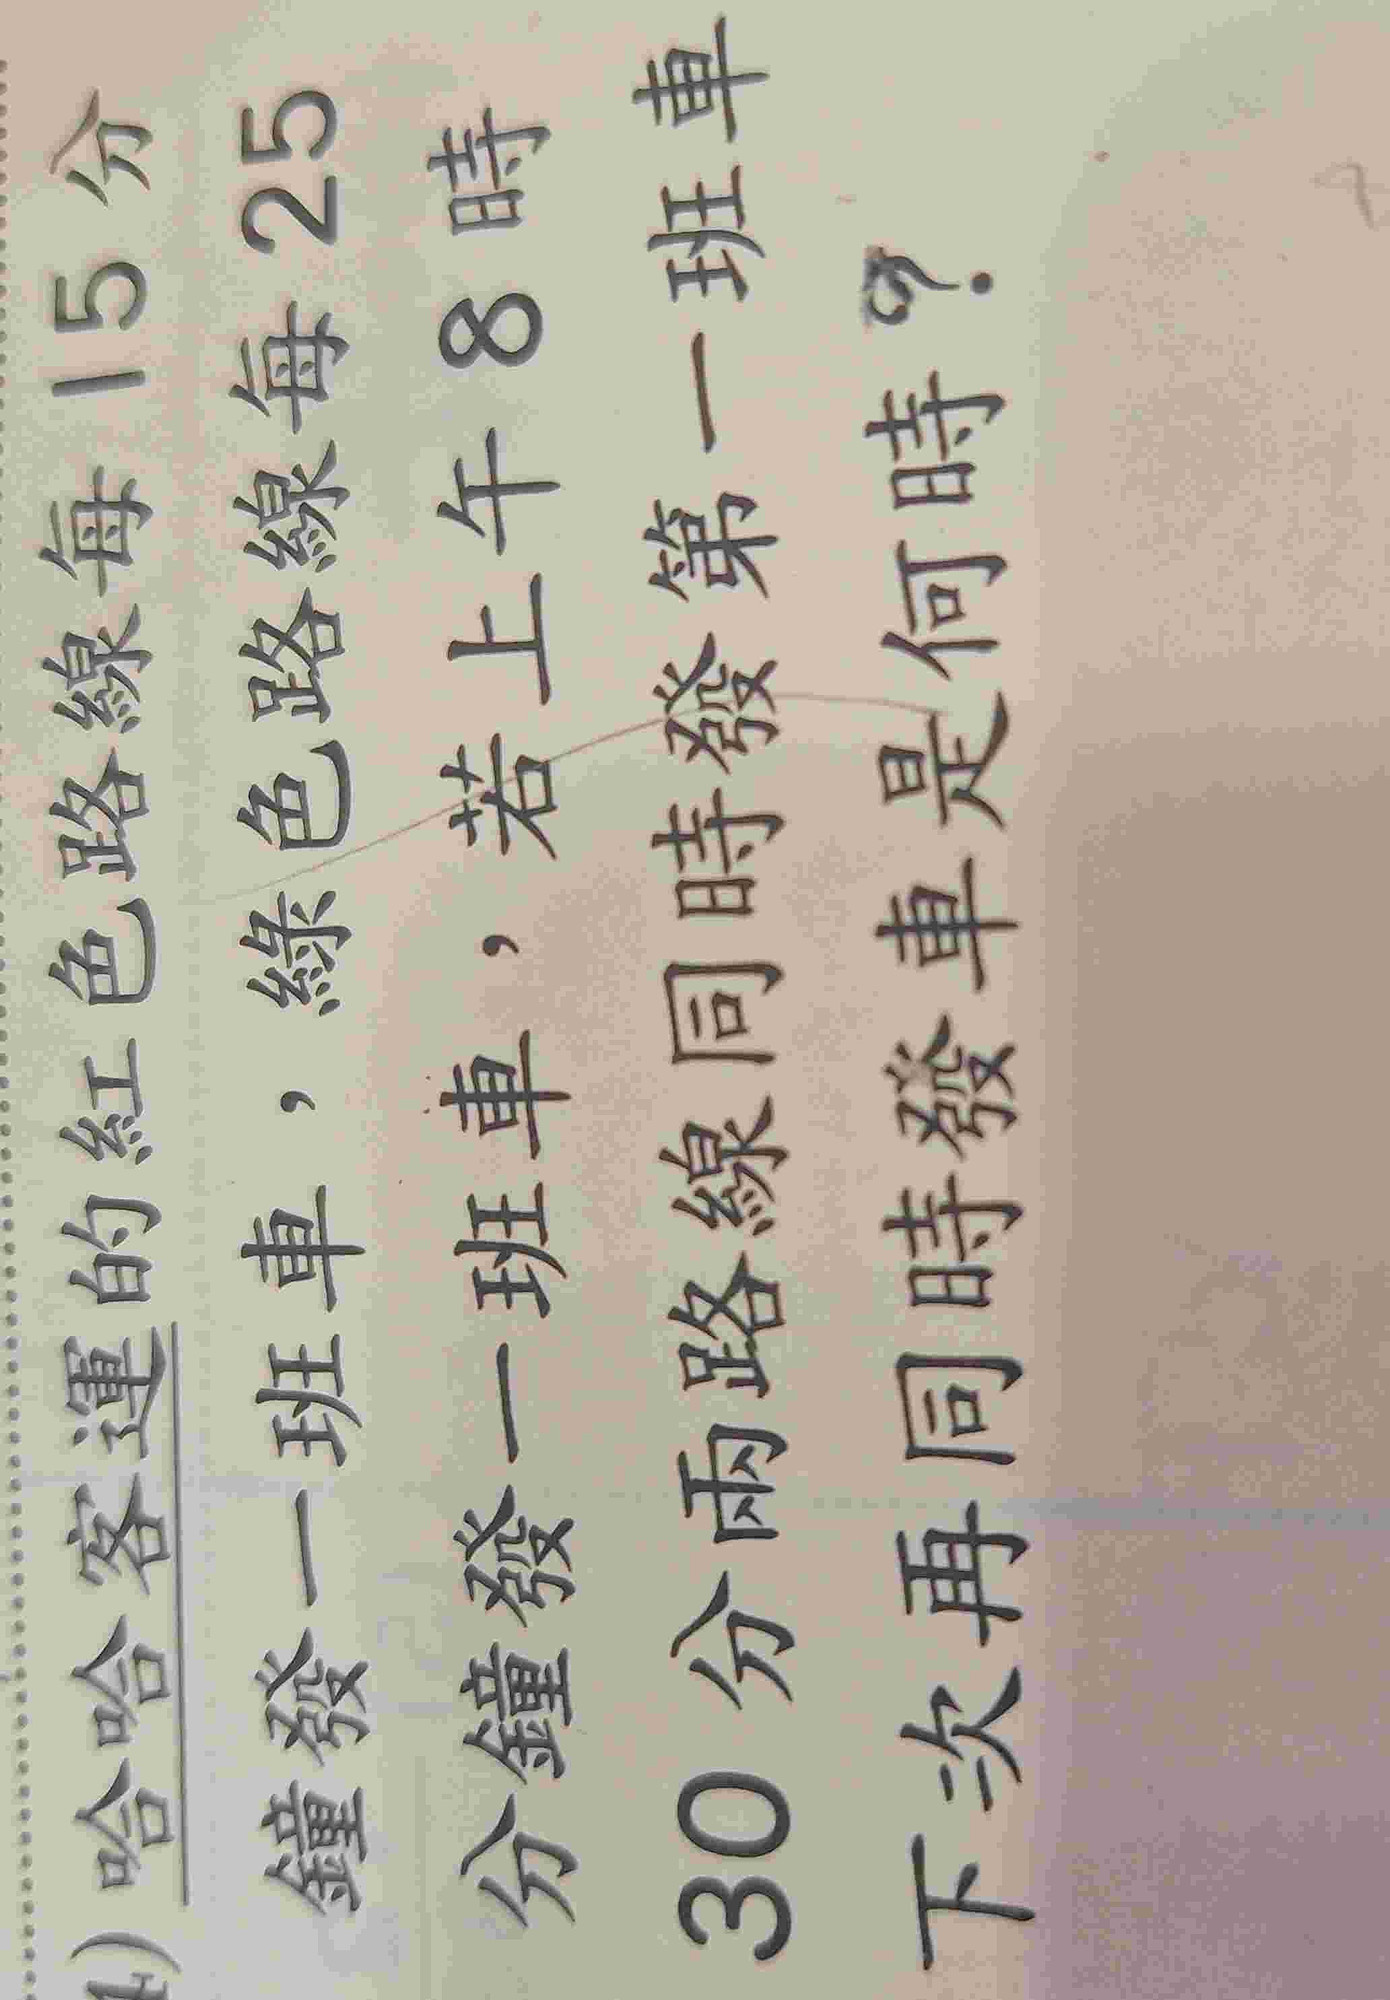 4) 哈哈客運的紅色路線每 15 分
鐘發一班車,綠色路線每 25
分鐘發一班車,若上午 8 時
30 分兩路線同時發第一班車
下次再同時發車是何時?